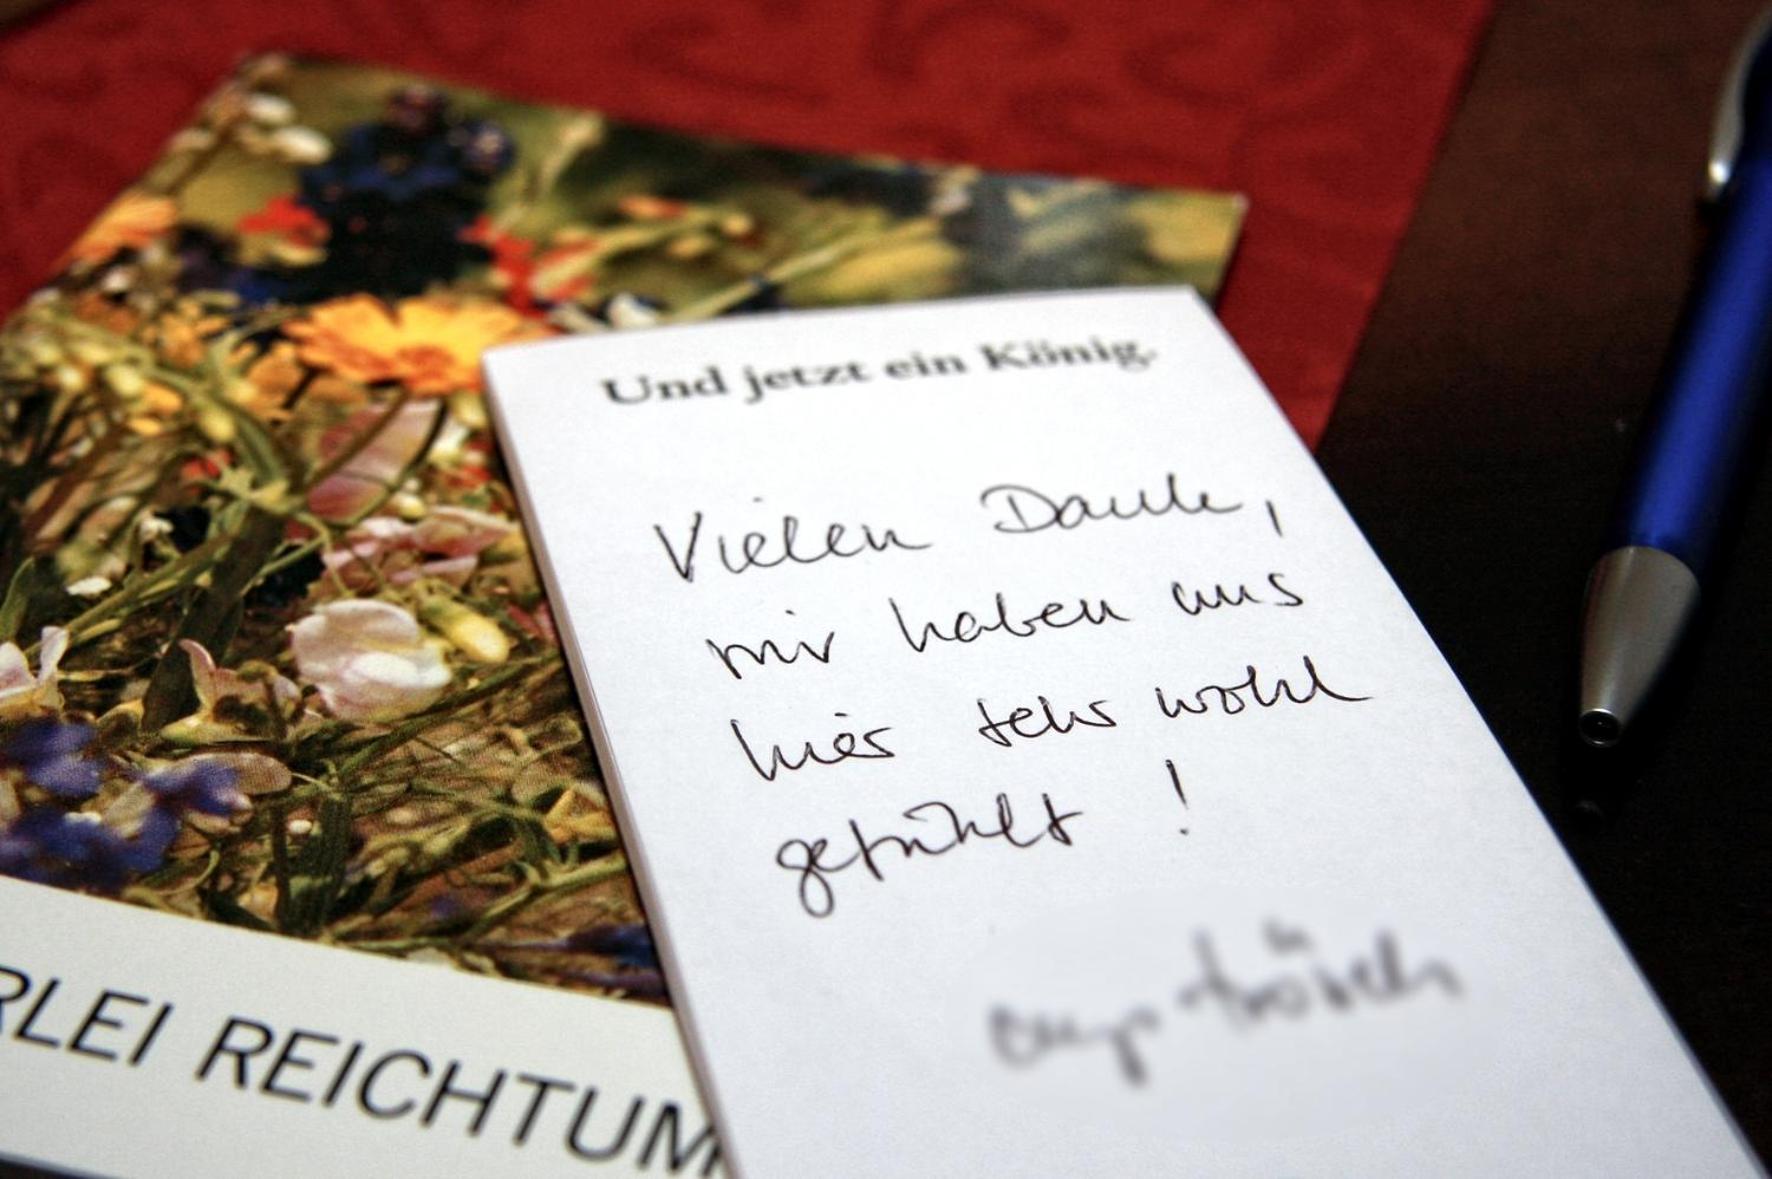 Und jetzt ein König.
Vielen Dank,
wir haben uns
hier sehr wohl
gefühlt!
RLEI REICHTUM